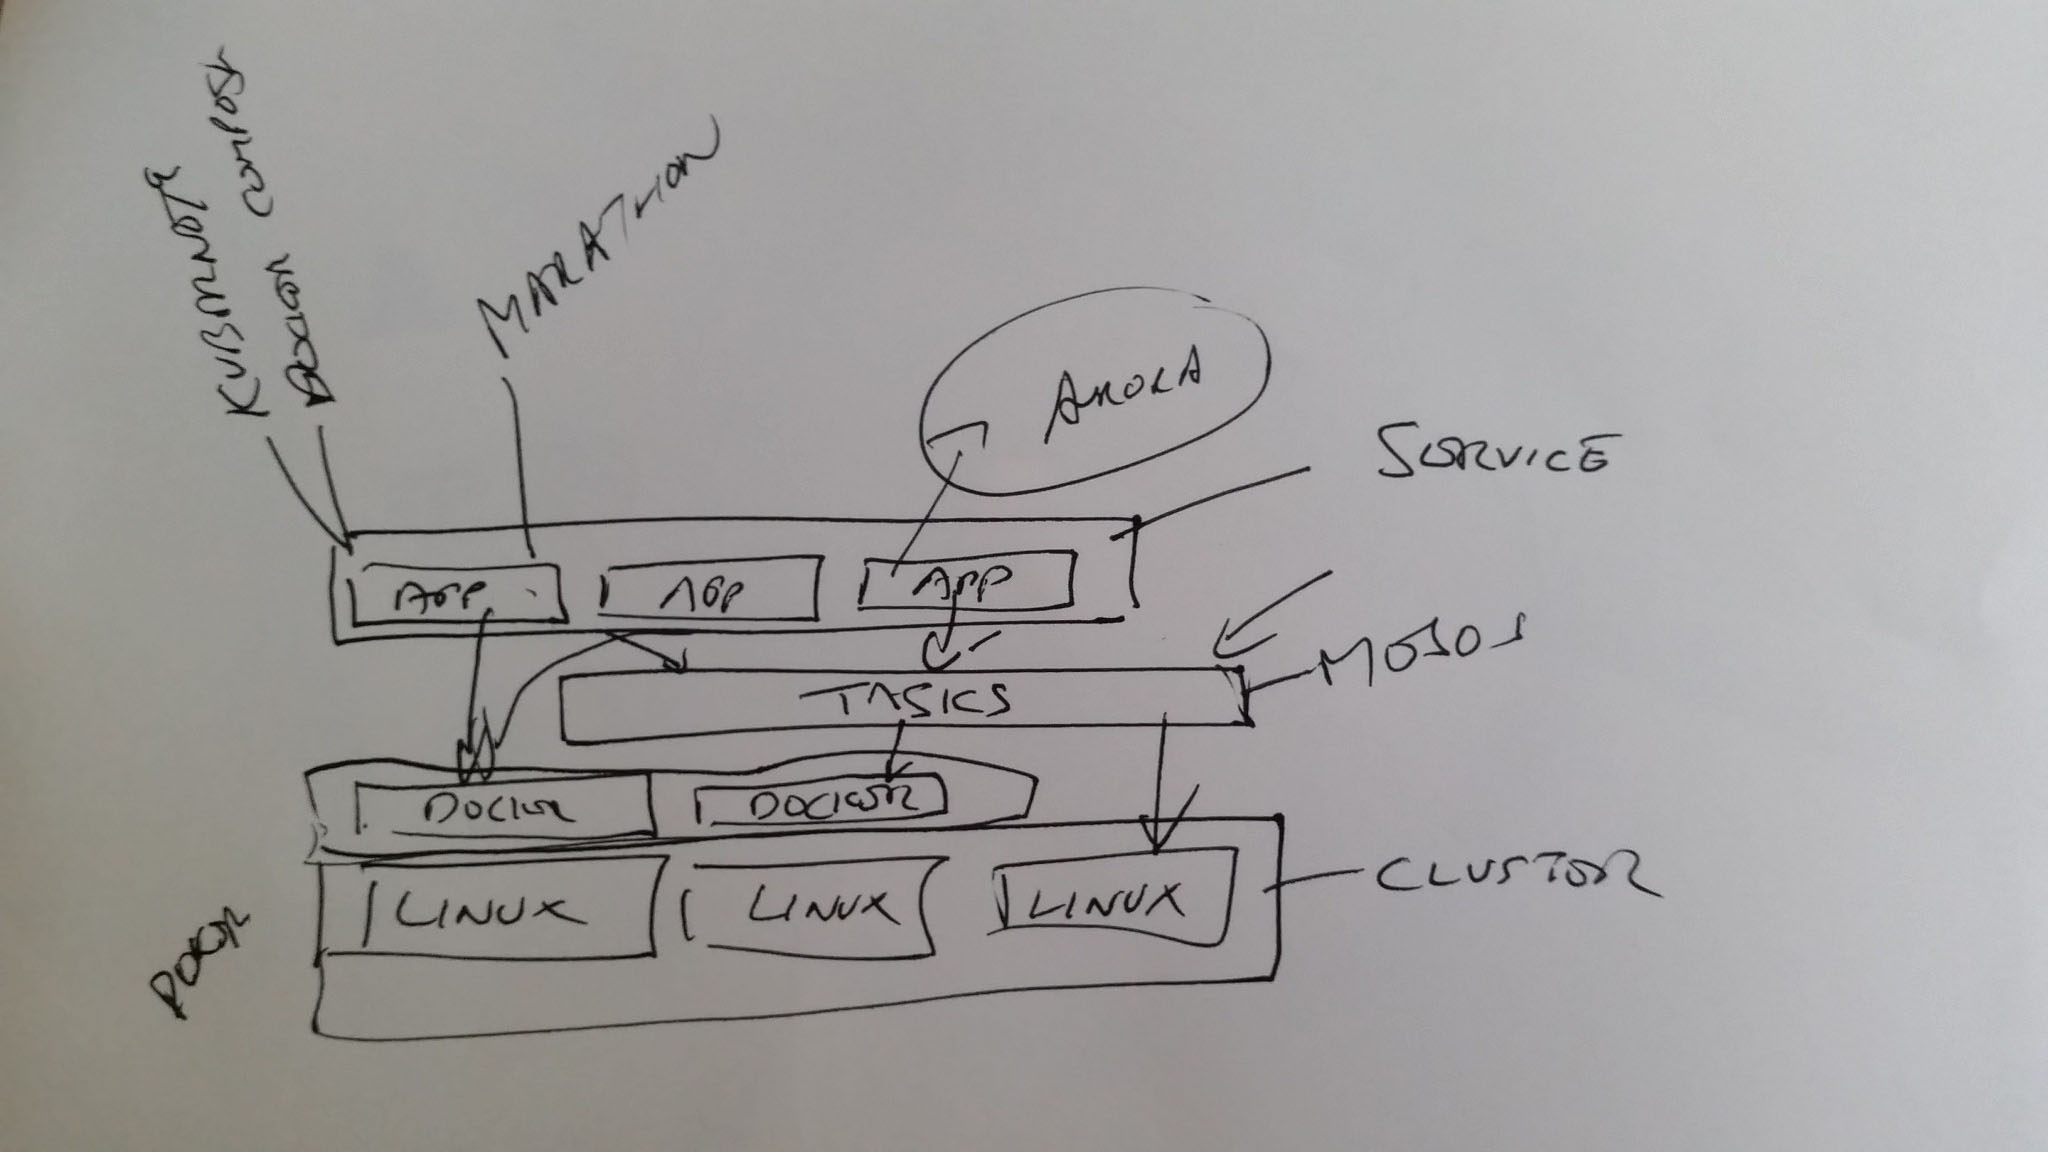 KUBERNETE
DOCKER COMPOSE
MARATHON
AURORA
SERVICE
APP
APP
APP
MESOS
TASKS
DOCKER
DOCKER
LINUX
LINUX
LINUX
CLUSTER